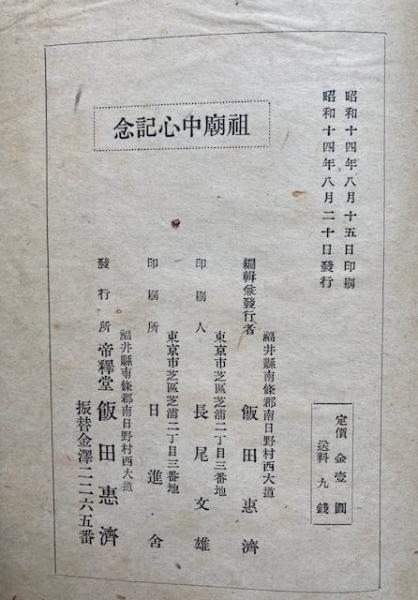 昭和十四年八月十五日印刷
昭和十四年八月二十日發行
定價 金壹圓
送料 九錢
祖廟中心記念
福井縣南條郡南日野村西大道
編輯兼發行者 飯田惠濟
東京市芝區芝浦二丁目三番地
印刷人 長尾文雄
東京市芝區芝浦二丁目三番地
印刷所 日進舍
福井縣南條郡南日野村西大道
發行所 帝釋堂 飯田惠濟
振替金澤二二六五番